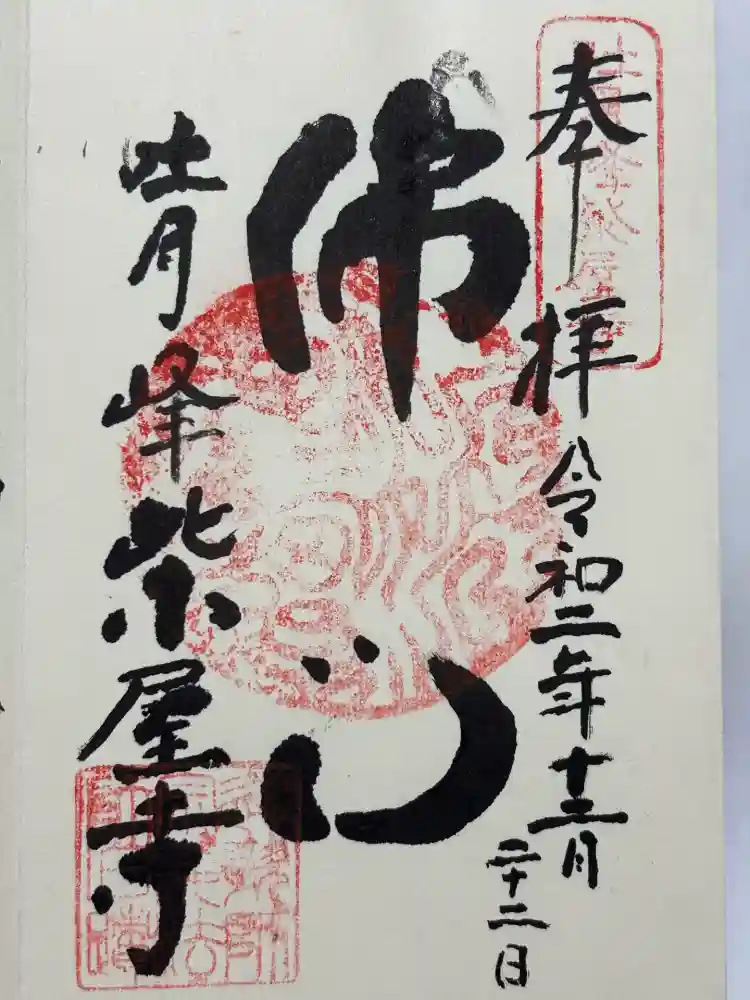 奉拝
令和二年十二月
二十二日
佛心
吐月峰柴屋寺